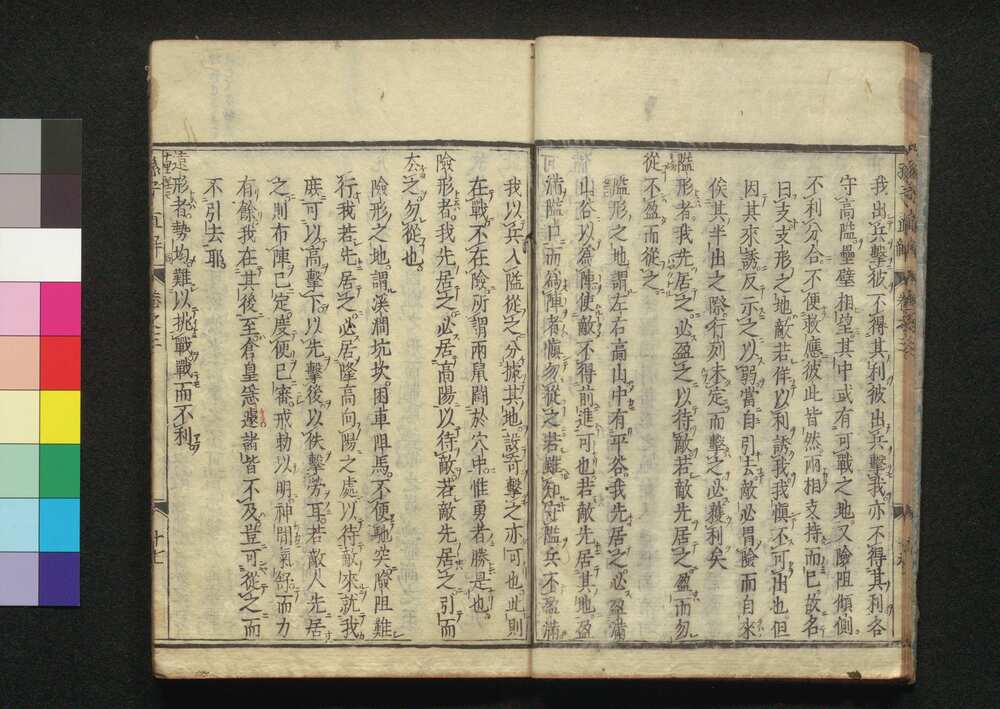 我出兵擊彼不得其利彼出兵擊我亦不得其利各
守高隘壘壁相望其中或有可戰之地又險阻傾側
不利分合不便救應彼此皆然兩相支持而已故名
曰支支形之地敵若佯以利誘我我慎不可出也但
因其來誘反示之以弱當自引去敵必冒險而自來
俟其半出之際行列未定而擊之必獲利矣
隘形者我先居之必盈之以待敵若敵先居之盈而勿
從不盈而從之
隘形之地謂左右高山中有平谷我先居之必盈滿
山谷以為陣使敵不得前進可也若敵先居其地盈
可滿隘口而為陣者慎勿從之若雖知守隘兵不盈滿
我以兵入隘從之分據其地設奇擊之亦可也此則
在戰不在險所謂兩鼠鬪於穴中惟勇者勝是也
險形者我先居之必居高陽以待敵若敵先居之引而
去之勿從也
險形之地謂溪澗坑坎困車阻馬不便馳突險阻難
行我若先居之必居隆高向陽之處以待敵來就我
庶可以高擊下以先擊後以佚擊勞耳若敵人先居
之則布陣已定度便已審戒勅以明神閒氣舒而力
有餘我在其後至倉皇急遽諸皆不及豈可從之而
不引去耶
遠形者勢均難以挑戰戰而不利
孫子直解 卷之三 十七